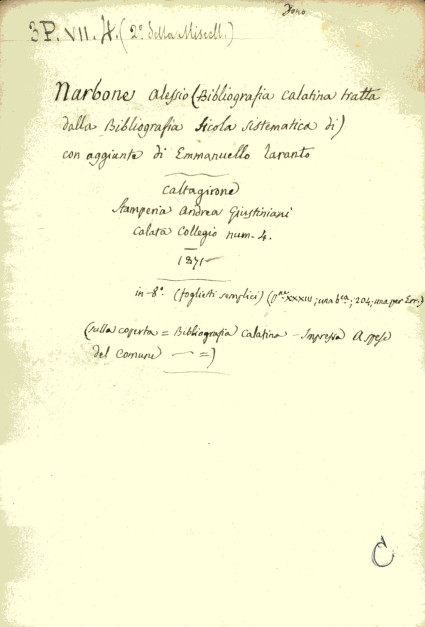 Dono
3P. VII. H. (2° della Miscell.)
Narbone Alessio (Bibliografia calatina tratta
dalla Bibliografia Sicola sistematica di)
con aggiunte di Emmanuello Taranto
Caltagirone
Stamperia Andrea Giustiniani
Calata Collegio num. 4.
1871
in-8°. (foglietti semplici) (pne XXXIII; una bca; 204, una per Err.)
(sulla coperta = Bibliografia Calatina - Impressa A spese
del Comune — =)
C